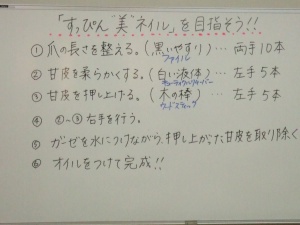 「すっぴん"美"ネイル」を目指そう!!
①爪の長さを整える。(黒いやすり)… 両手10本
ファイル
②甘皮を柔らかくする。(白い液体)… 左手5本
キューティクルリムーバー
③甘皮を押し上げる。(木の棒)… 左手5本
ウッドスティック
④ ②~③右手を行う。
⑤ ガーゼを水につけながら、押し上がった甘皮を取り除く
⑥ オイルをつけて完成!!